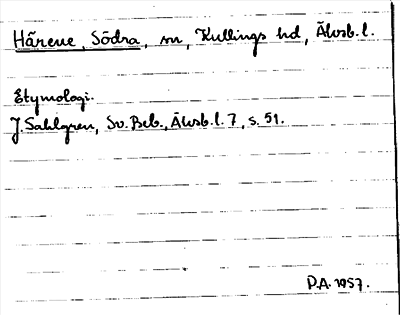 Härene, Södra, sn, Kullings hd, Älvsb. l.
Etymologi.
J. Sahlgren, Sv. Beb., Älvsb. l. 7, s. 51.
P.A. 1957.